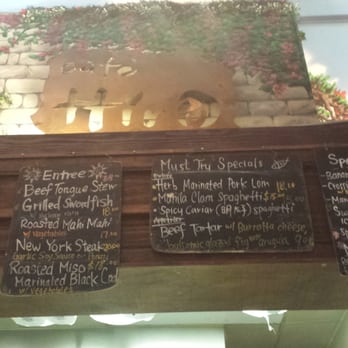 Cafe
Entree
Beef Tongue Stew
Grilled Swordfish
18.00
Roasted Mahi Mahi
w/ vegetables 17.00
New York Steak 20.00
Garlic Soy Sauce w/
Roasted Miso $18.00
Marinated Black Cod
w/ vegetables
Must Try Specials
Entree
• Herb Marinated Pork Loin 18.00
• Manila Clam Spaghetti $15.00
• Spicy Caviar (明太子) spaghetti
Appetizer
Beef Tartar w/ Burratta cheese
balsamic glazed fig arugula
Sp